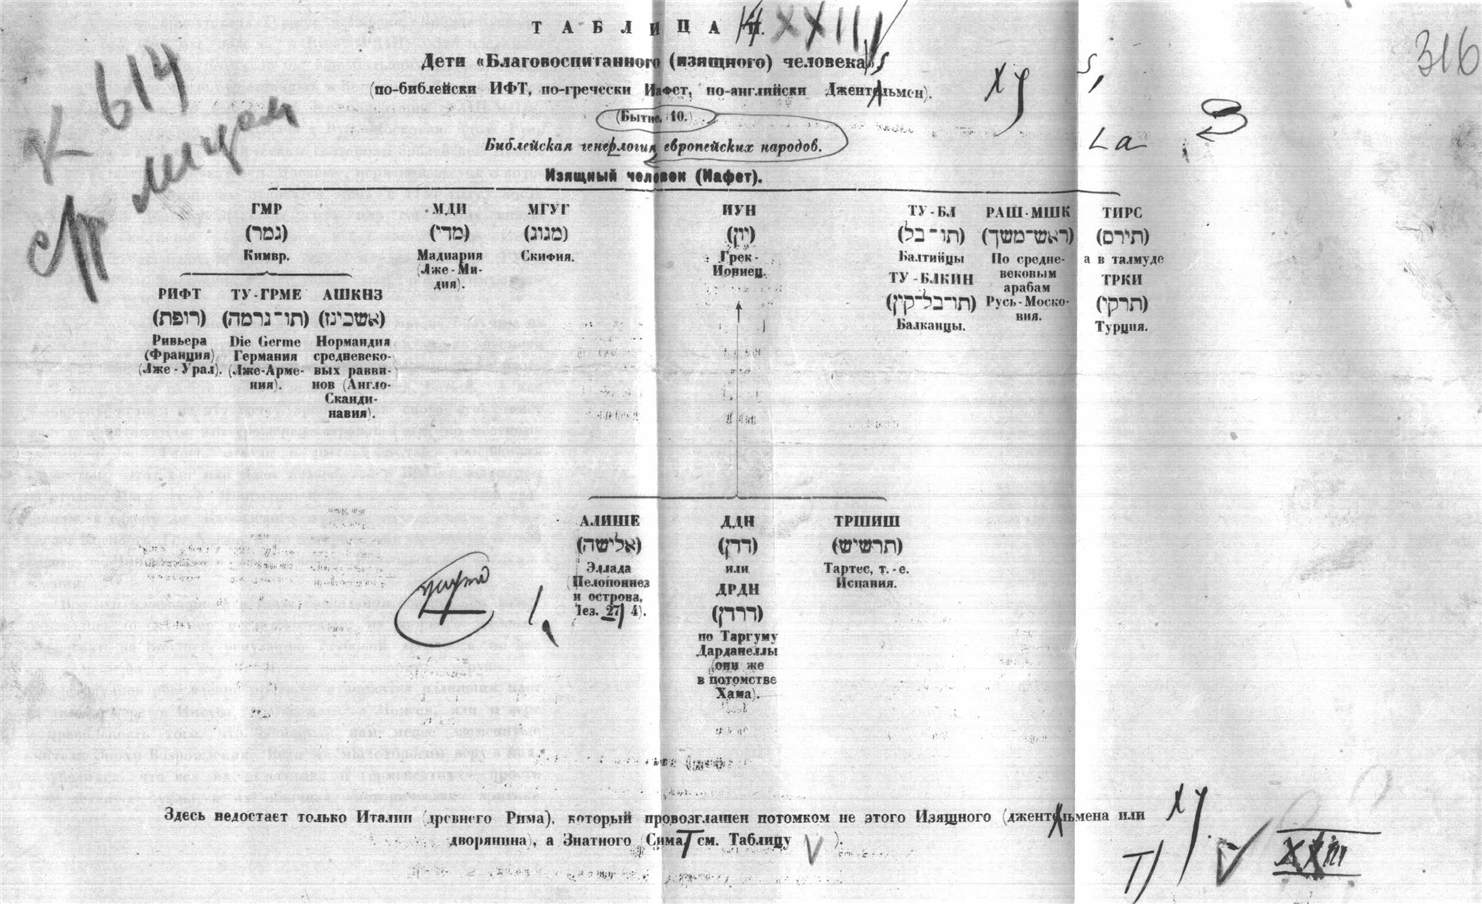 ТАБЛИЦА
XXIII
316
Дети «Благовоспитанного (изящного) человека»
(по-библейски ИФТ, по-гречески Иафет, по-английски Джентельмен).
(Бытие, 10.)
Библейская генерлогия европейских народов.
La
к 614
Изящный человек (Иафет).
ГМР
(גמר)
Кимвр.
МДИ
(מדי)
Мадиария
(Лже-Ми-
дия).
МГУГ
(מגוג)
Скифия.
ИУН
(יון)
Грек-
Иониец.
ТУ-БЛ
(תו־בל)
Балтийцы
ТУ-БЛКИН
(תו־בל־קין)
Балканцы.
РАШ-МШК
(ראש־משך)
По средне-
вековым
арабам
Русь-Моско-
вия.
ТИРС
(תירס)
а в талмуде
ТРКИ
(תרקי)
Турция.
РИФТ
(רופת)
Ривьера
(Франция)
(Лже-Урал).
ТУ-ГРМЕ
(תו־גרמה)
Die Germe
Германия
(Лже-Арме-
ния).
АШКНЗ
(אשכינז)
Нормандия
средневеко-
вых равви-
нов (Англо-
Сканди-
навия).
АЛИШЕ
(אלישה)
Эллада
(Пелопоннез
и острова,
Iез. 27, 4).
ДДН
(דדן)
или
ДРДН
(דרדן)
по Таргуму
Дарданеллы
(они же
в потомстве
Хама).
ТРШИШ
(תרשיש)
Тартес, т.-е.
Испания.
Здесь недостает только Италии (древнего Рима), который провозглашен потомком не этого Изящного (джентельмена или
дворянина), а Знатного (Сима, см. Таблицу V ).
XXIII